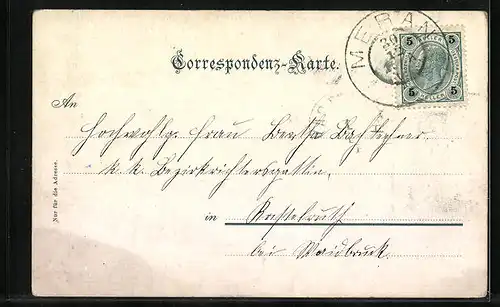 MERAN
5 5
5 5
Correspondenz-Karte.
An
Hochwohlg. Frau Bertha
k. k. Bezirksrichtersgattin,
in Kastelruth
bei Waidbruck.
Nur für die Adresse.